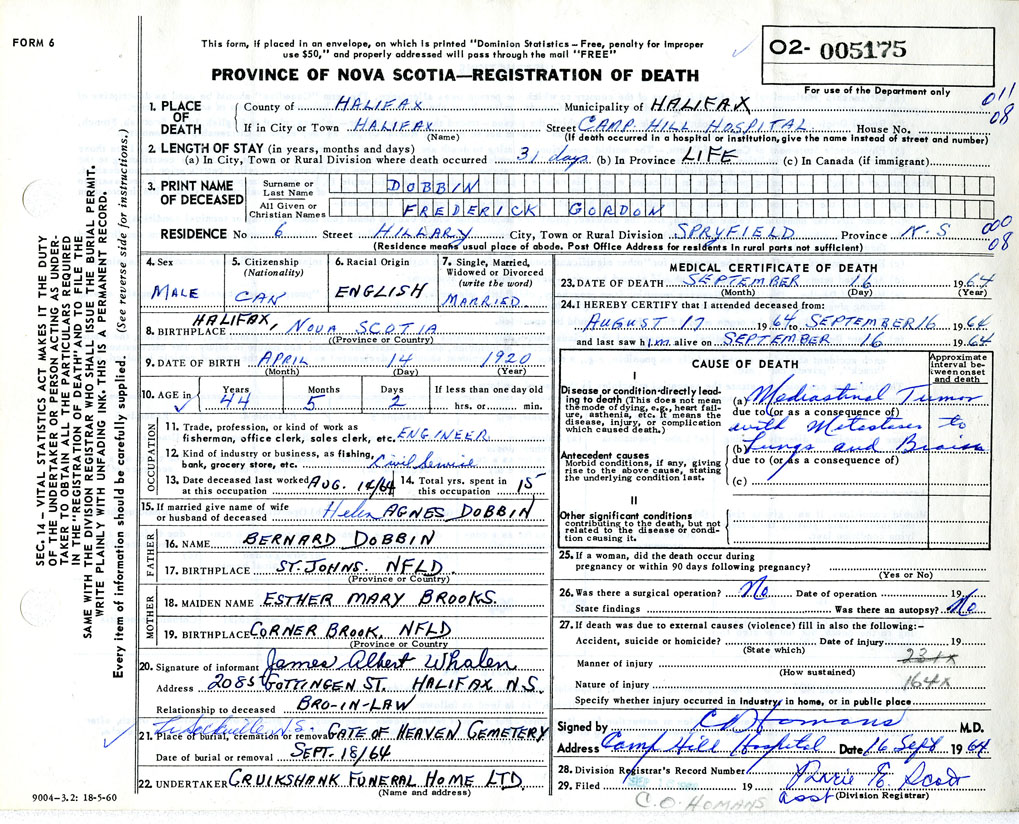 FORM 6
This form, if placed in an envelope, on which is printed "Dominion Statistics – Free, penalty for improper
use $50," and properly addressed will pass through the mail "FREE"
PROVINCE OF NOVA SCOTIA—REGISTRATION OF DEATH
02- 005175
For use of the Department only
011
08
1. PLACE OF DEATH
County of HALIFAX Municipality of HALIFAX
If in City or Town HALIFAX Street CAMP HILL HOSPITAL House No.
(Name) (If death occurred in a hospital or institution, give the name instead of street and number)
2. LENGTH OF STAY (in years, months and days)
(a) In City, Town or Rural Division where death occurred 31 days (b) In Province LIFE (c) In Canada (if immigrant)
3. PRINT NAME OF DECEASED
Surname or Last Name DOBBIN
All Given or Christian Names FREDERICK GORDON
000
08
RESIDENCE No 6 Street HILLARY City, Town or Rural Division SPRYFIELD Province N.S
(Residence means usual place of abode. Post Office Address for residents in rural parts not sufficient)
4. Sex MALE
5. Citizenship (Nationality) CAN
6. Racial Origin ENGLISH
7. Single, Married, Widowed or Divorced (write the word) MARRIED
8. BIRTHPLACE HALIFAX, NOVA SCOTIA
((Province or Country)
9. DATE OF BIRTH APRIL 14 1920
(Month) (Day) (Year)
10. AGE in Years 44 Months 5 Days 2 If less than one day old hrs. or min.
OCCUPATION
11. Trade, profession, or kind of work as
fisherman, office clerk, sales clerk, etc. ENGINEER
12. Kind of industry or business, as fishing,
bank, grocery store, etc. Civil Service
13. Date deceased last worked at this occupation AUG. 14/64
14. Total yrs. spent in this occupation 15
15. If married give name of wife
or husband of deceased Helen AGNES DOBBIN
FATHER
16. NAME BERNARD DOBBIN
17. BIRTHPLACE ST. JOHNS. NFLD
(Province or Country)
MOTHER
18. MAIDEN NAME ESTHER MARY BROOKS.
19. BIRTHPLACE CORNER BROOK, NFLD
(Province or Country
20. Signature of informant James Albert Whalen
Address 2085 GOTTINGEN ST. HALIFAX N.S.
Relationship to deceased BRO-IN-LAW
Sackville, N.S.
21. Place of burial, cremation or removal GATE OF HEAVEN CEMETERY
Date of burial or removal SEPT. 18/64
22. UNDERTAKER CRUIKSHANK FUNERAL HOME LTD.
(Name and address)
9004–3.2: 18-5-60
MEDICAL CERTIFICATE OF DEATH
23. DATE OF DEATH SEPTEMBER 16 1964
(Month) (Day) (Year)
24. I HEREBY CERTIFY that I attended deceased from:
AUGUST 17 1964 to SEPTEMBER 16 1964
and last saw him alive on SEPTEMBER 16 1964
CAUSE OF DEATH
Approximate interval between onset and death
I
Disease or condition directly leading to death (This does not mean the mode of dying, e.g., heart failure, asthenia, etc. It means the disease, injury, or complication which caused death.)
(a) Mediastinal Tumor
due to (or as a consequence of)
with Metastases to
(b) Lungs and Brain
due to (or as a consequence of)
(c)
Antecedent causes
Morbid conditions, if any, giving rise to the above cause, stating the underlying condition last.
II
Other significant conditions
contributing to the death, but not related to the disease or condition causing it.
25. If a woman, did the death occur during
pregnancy or within 90 days following pregnancy?
(Yes or No)
26. Was there a surgical operation? No Date of operation 19
State findings Was there an autopsy? No
27. If death was due to external causes (violence) fill in also the following:–
Accident, suicide or homicide? Date of injury 19
(State which)
231X
Manner of injury
(How sustained)
164X
Nature of injury
Specify whether injury occurred in industry, in home, or in public place
Signed by C O Homans M.D.
Address Camp Hill Hospital Date 16 Sept 1964
28. Division Registrar's Record Number
29. Filed 19 E. Scott
Asst (Division Registrar)
C.O. HOMANS
SEC. 14 – VITAL STATISTICS ACT MAKES IT THE DUTY
OF THE UNDERTAKER OR PERSON ACTING AS UNDER-
TAKER TO OBTAIN ALL THE PARTICULARS REQUIRED
IN THE "REGISTRATION OF DEATH" AND TO FILE THE
SAME WITH THE DIVISION REGISTRAR WHO SHALL ISSUE THE BURIAL PERMIT.
WRITE PLAINLY WITH UNFADING INK. THIS IS A PERMANENT RECORD.
Every item of information should be carefully supplied. (See reverse side for instructions.)